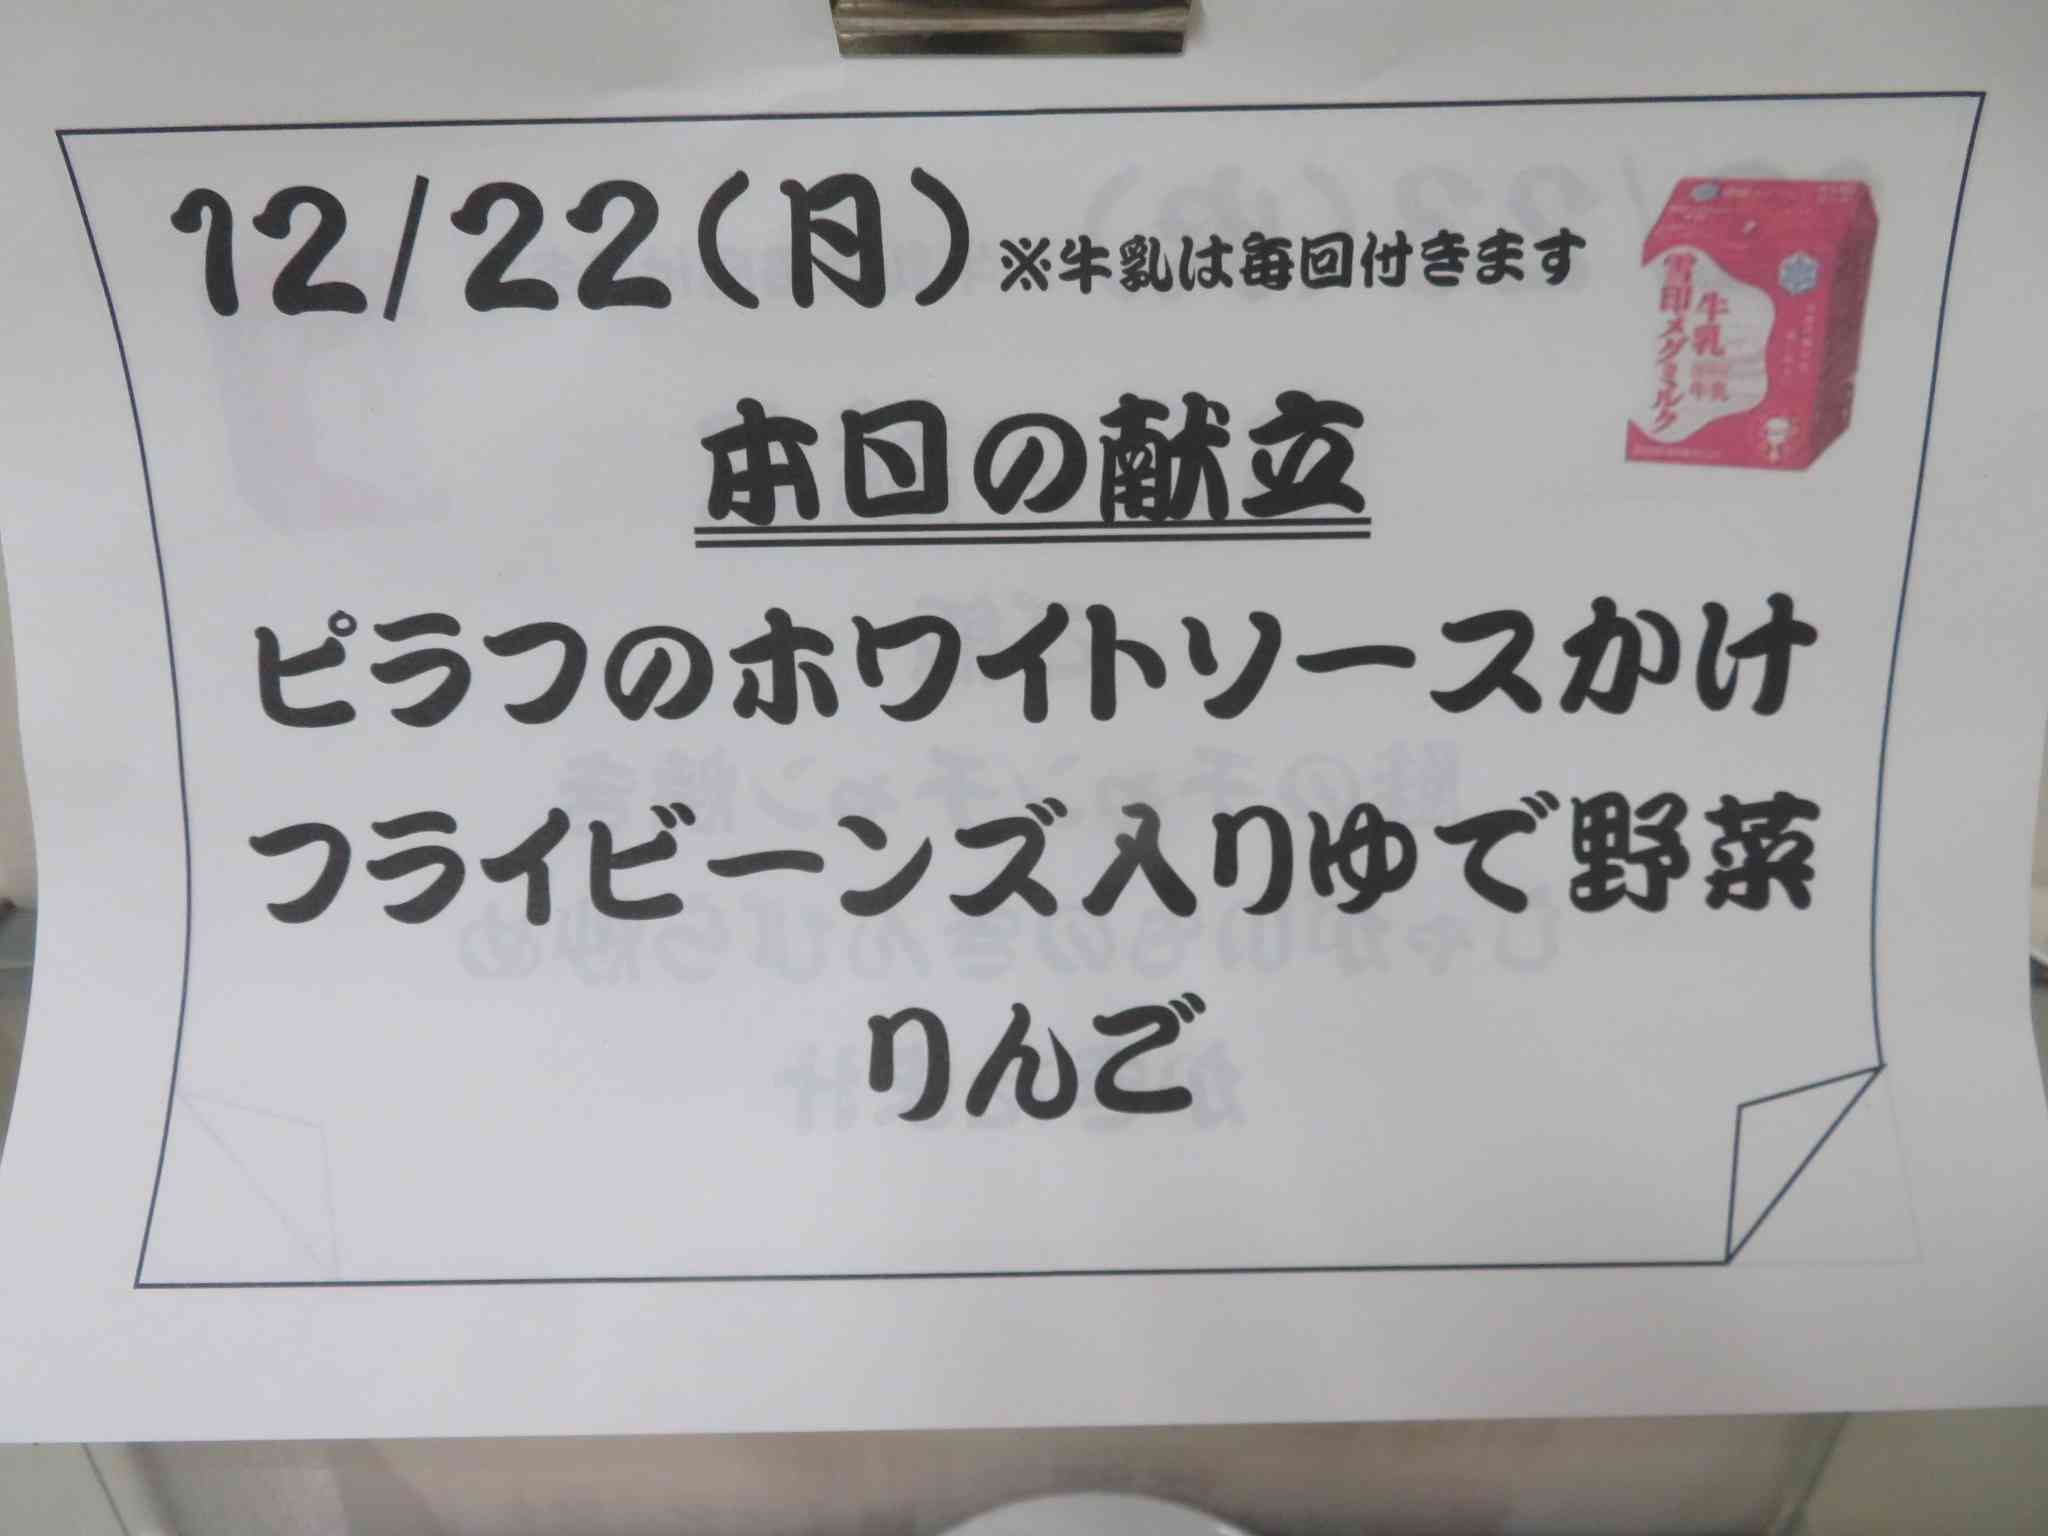 12/22(月) ※牛乳は毎回付きます
雪印メグミルク
牛乳
本日の献立
ピラフのホワイトソースかけ
フライビーンズ入りゆで野菜
りんご